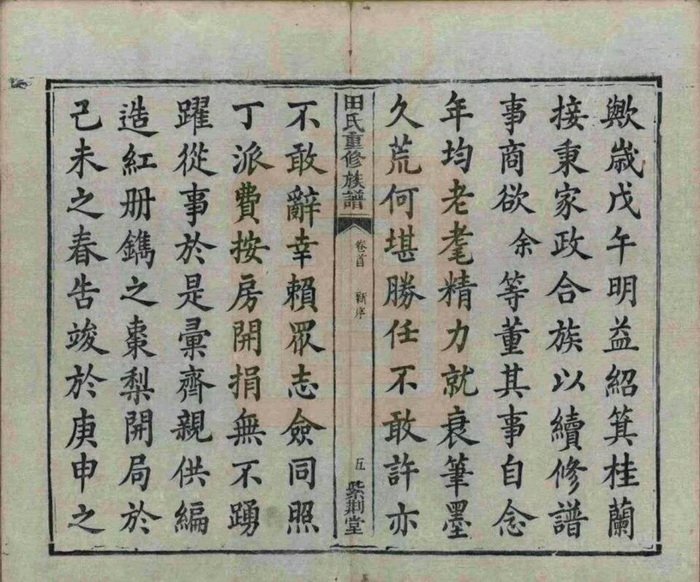 歟歲戊午明益紹箕桂蘭
接秉家政合族以續修譜
事商欲余等董其事自念
年均老耄精力就衰筆墨
久荒何堪勝任不敢許亦
田氏重修族譜 卷首 新序 五 紫荆堂
不敢辭幸賴眾志僉同照
丁派費按房開捐無不踴
躍從事於是彙齊親供編
造紅册鐫之棗梨開局於
己未之春告竣於庚申之